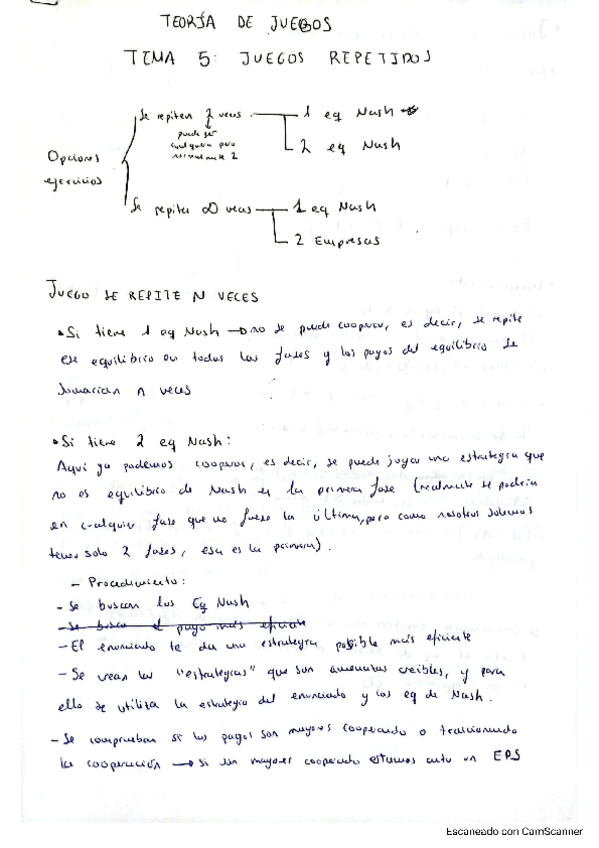 TEORÍA DE JUEGOS
TEMA 5: JUEGOS REPETIDOS
Opciones
ejercicios
Se repiten 2 veces
puede ser
cualquiera pero
normalmente 2
1 eq Nash
2 eq Nash
Se repiten ∞ veces
1 eq Nash
2 Empresas
JUEGO SE REPITE N VECES
• Si tiene 1 eq Nash → no se puede cooperar, es decir, se repite
ese equilibrio en todas las fases y los pagos del equilibrio se
sumarian n veces
• Si tiene 2 eq Nash:
Aqui ya podemos cooperar, es decir, se puede jugar una estrategia que
no es equilibrio de Nash en la primera fase (realmente se podria
en cualquier fase que no fuese la última, pero como nosotros solemos
tener solo 2 fases, esa es la primera).
- Procedimiento:
- Se buscan los Eq Nash
- Se busca el pago más eficiente
- El enunciado te da una estrategia posible más eficiente
- Se crean las "estrategias" que son amenazas creibles, y para
ello se utiliza la estrategia del enunciado y los eq de Nash.
- Se comprueban si los pagos son mayores cooperando o traicionando
la cooperación → si son mayores cooperando estamos ante un EPS
Escaneado con CamScanner